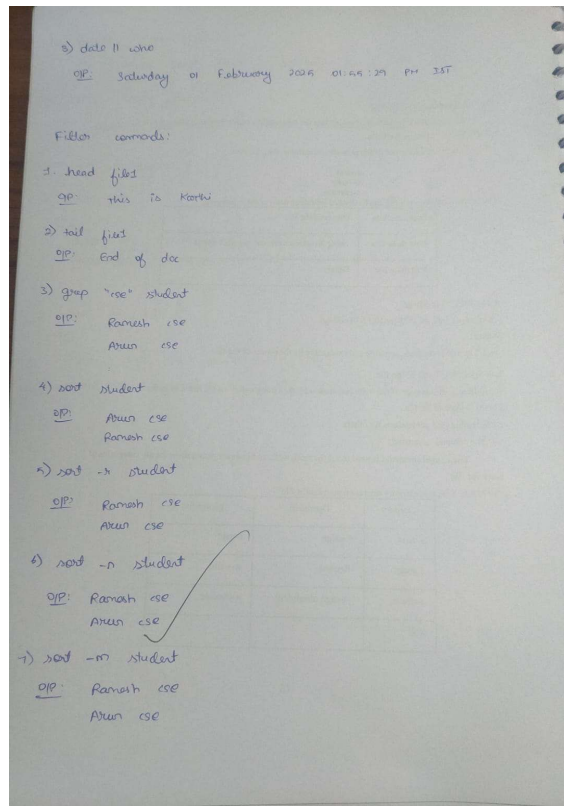 3) date || who
O/P: Saturday 01 February 2025 01:55:29 PM IST
Filter commands:
1. head file1
O/P: this is Karthi
2) tail file1
O/P: End of doc
3) grep "cse" student
O/P: Ramesh cse
Arun cse
4) sort student
O/P: Arun cse
Ramesh cse
5) sort -r student
O/P: Ramesh cse
Arun cse
6) sort -n student
O/P: Ramesh cse
Arun cse
7) sort -m student
O/P: Ramesh cse
Arun cse